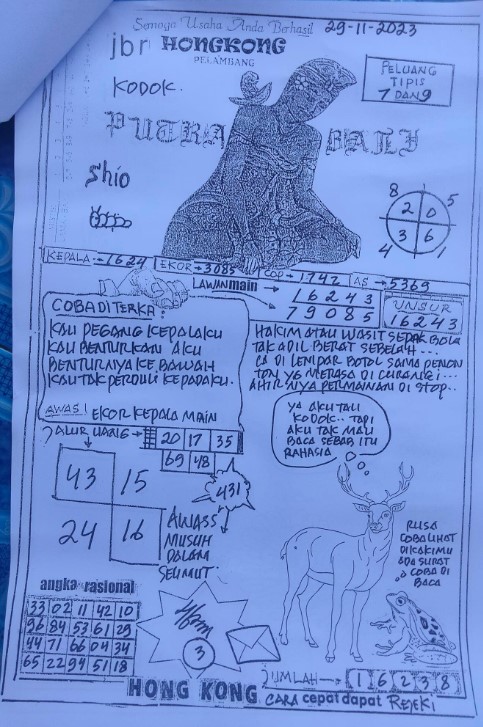 Semoga Usaha Anda Berhasil 29-11-2023
jbr HONGKONG
PELAMBANG
KODOK.
PELUANG
TIPIS
7 DAN 9
PUTRA BALI
Shio
8 5
2 0
3 6
4 1
KEPALA → 1624 EKOR → 3085 COP → 1742 AS → 5369
LAWAN main →
16243
79085
UNSUR
16243
COBA DI TERKA :
KAU PEGANG KEPALAKU
KAU BENTURKAN AKU
BENTURNYA KE BAWAH
KAU TAK PERDULI KEPADAKU.
AWAS! EKOR KEPALA MAIN
HAKIM ATAU WASIT SEPAK BOLA
TAK ADIL BERAT SEBELAH...
IA DI LEMPAR BOTOL SAMA PENON
TON YG MERASA DI CURANGI...
AHIRNYA PERMAINAN DI STOP..
ALUR UANG →
20 17 35
69 48
43 15
24 16
431
AWASS
MUSUH
DALAM
SELIMUT.
YA AKU TAU
KODOK.. TAPI
AKU TAK MAU
BACA SEBAB ITU
RAHASIA
RUSA
COBA LIHAT
DI KAKIMU
ADA SURAT
COBA DI
BACA
angka rasional
33 02 11 42 10
96 84 53 61 29
44 71 66 04 34
65 22 94 51 18
3
JUMLAH → 1 6 2 3 8
HONG KONG CARA cepat dapat REJEKI